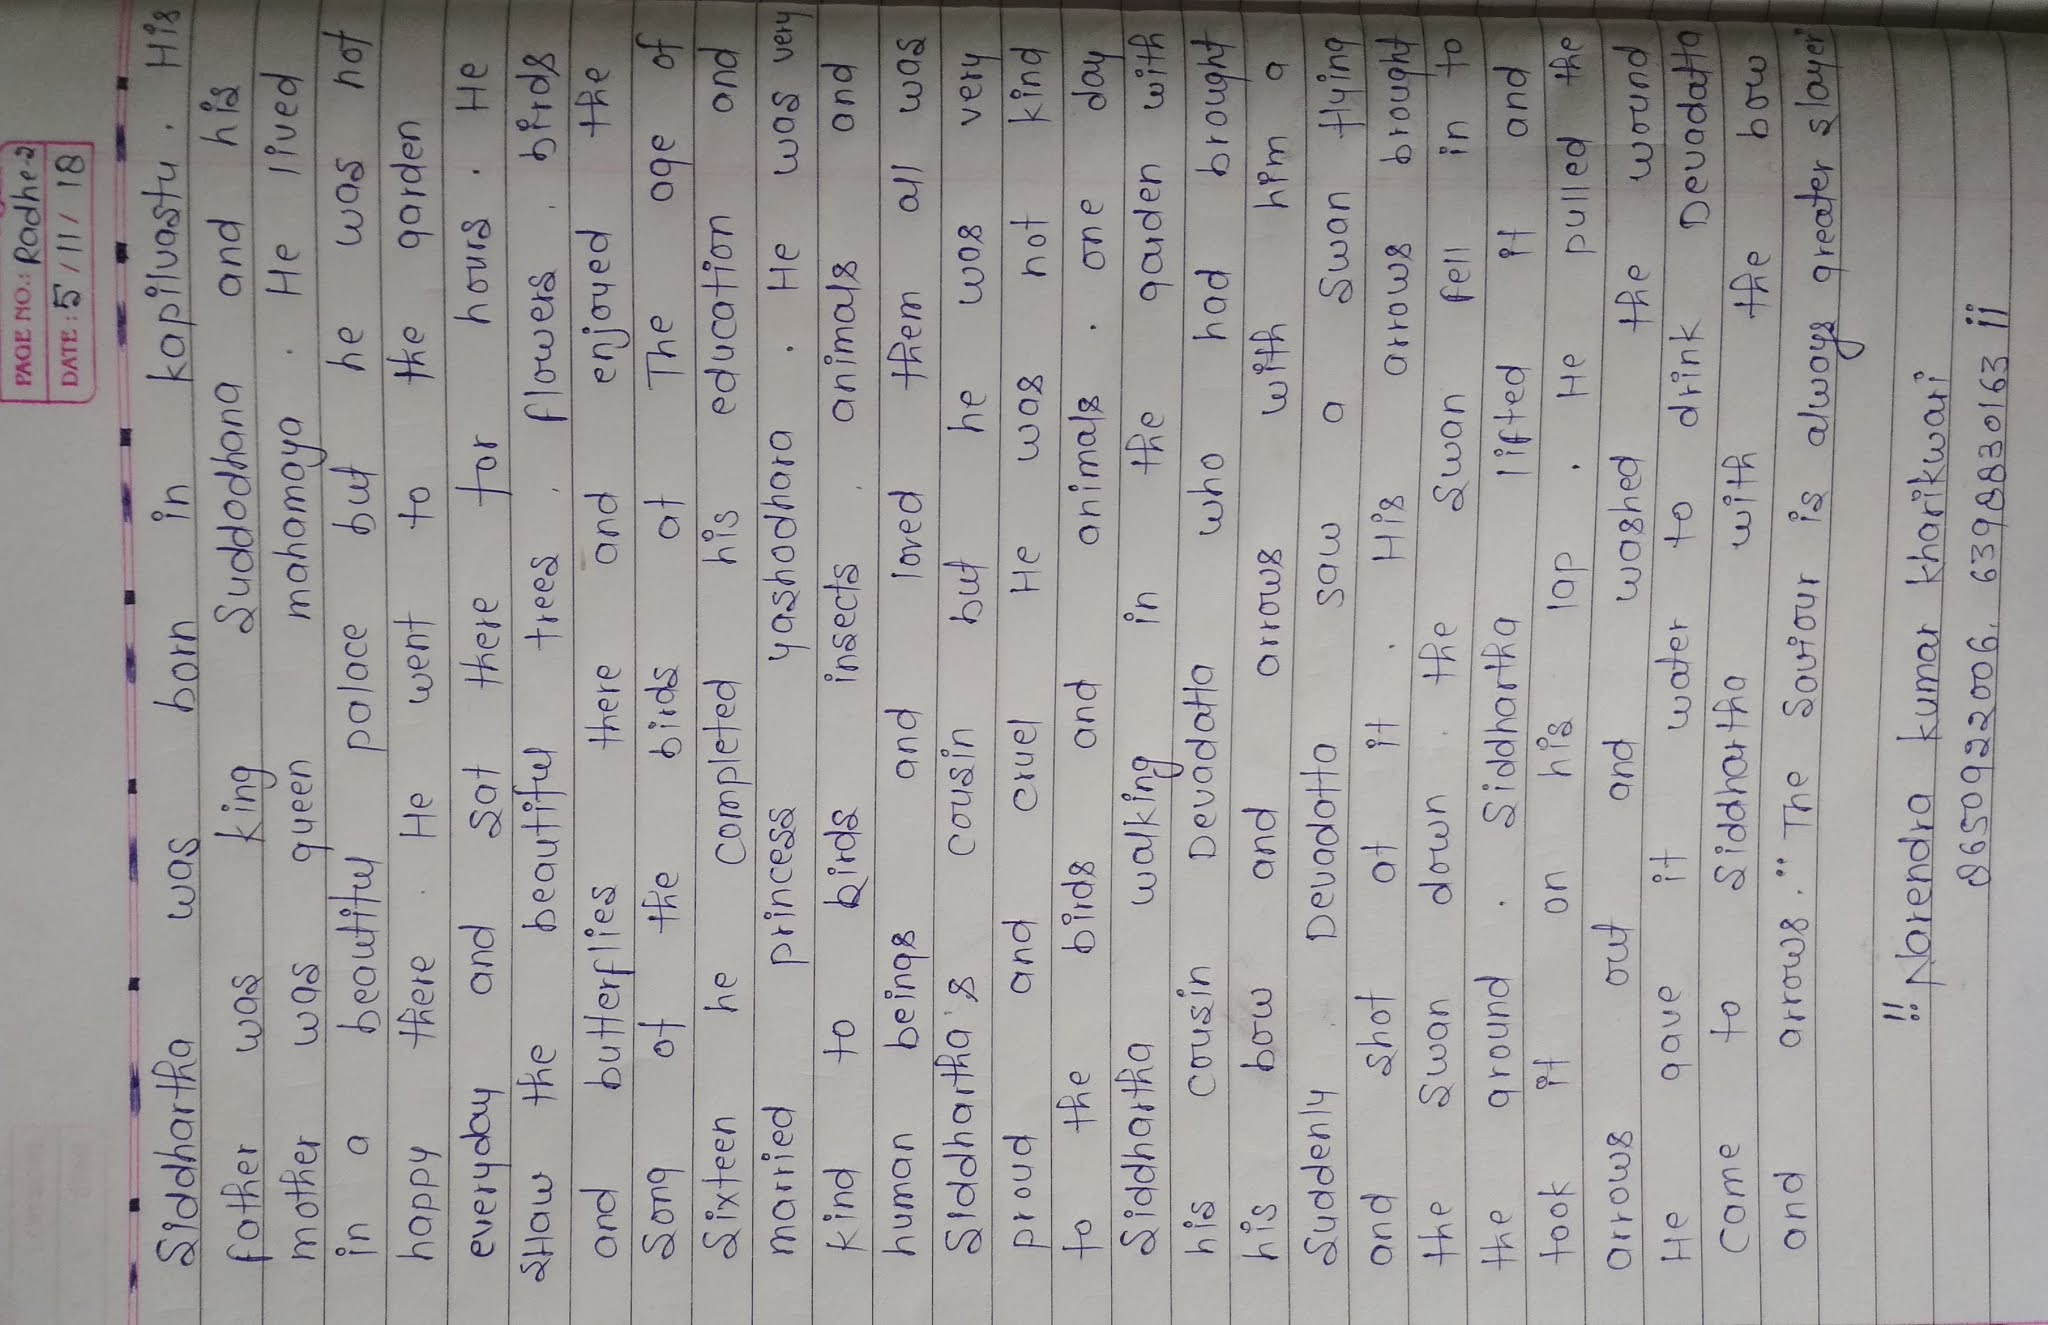 PAGE NO.: Radhe-2
DATE: 5/11/18
Siddhartha was born in kapilvastu. His
father was king Suddodhana and his
mother was queen mahamaya. He lived
in a beautiful palace but he was not
happy there. He went to the garden
everyday and sat there for hours. He
shaw the beautiful trees, flowers, birds
and butterflies there and enjoyed the
Song of the birds at The age of
Sixteen he completed his education and
married princess yashodhara. He was very
kind to birds insects, animals and
human beings and loved them all was
Siddhartha's cousin but he was very
proud and cruel He was not kind
to the birds and animals. one day
Siddhartha walking in the garden with
his cousin Devadatta who had brought
his bow and arrows with him a
Suddenly Devadatta saw a swan flying
and shot at it. His arrows brought
the swan down. the swan fell in to
the ground. Siddhartha lifted it and
took it on his lap. He pulled the
arrows out and washed the wound
He gave it water to drink Devadatta
Came to Siddhartha with the bow
and arrows." The Saviour is always greater slayer"
!! Narendra kumar kharikwari
8650922006, 6398830163 !!